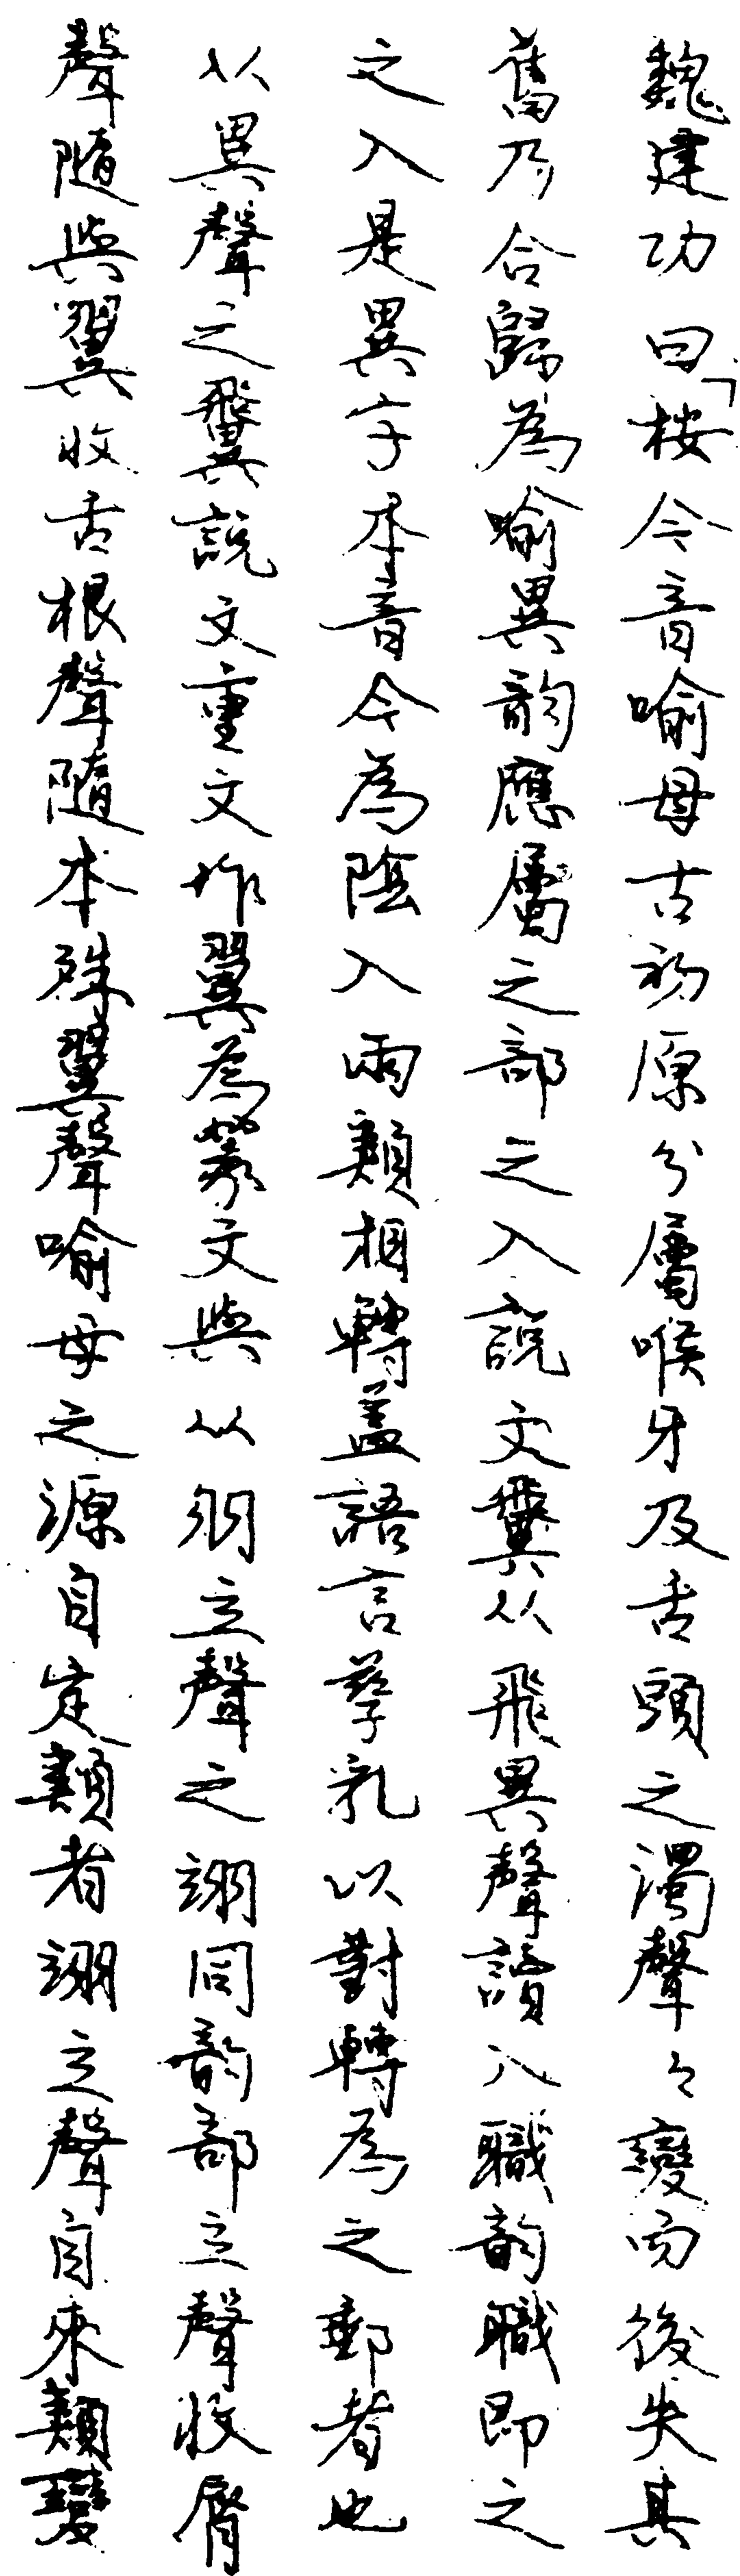 魏建功曰「桉今音喻母古初原分屬喉牙及舌頭之濁聲々變而後失其
舊乃合歸為喻異韵應屬之部之入說文䨱从飛異聲讀入職韵職即之
之入是異字本音今為陰入兩類相轉蓋語言孳乳以對轉為之郵者也
从異聲之䨱說文重文作翼為篆文與从羽立聲之翊同韵部立聲收脣
聲隨與翼收舌根聲隨本殊翼聲喻母之源自定類者翊之聲自來類變